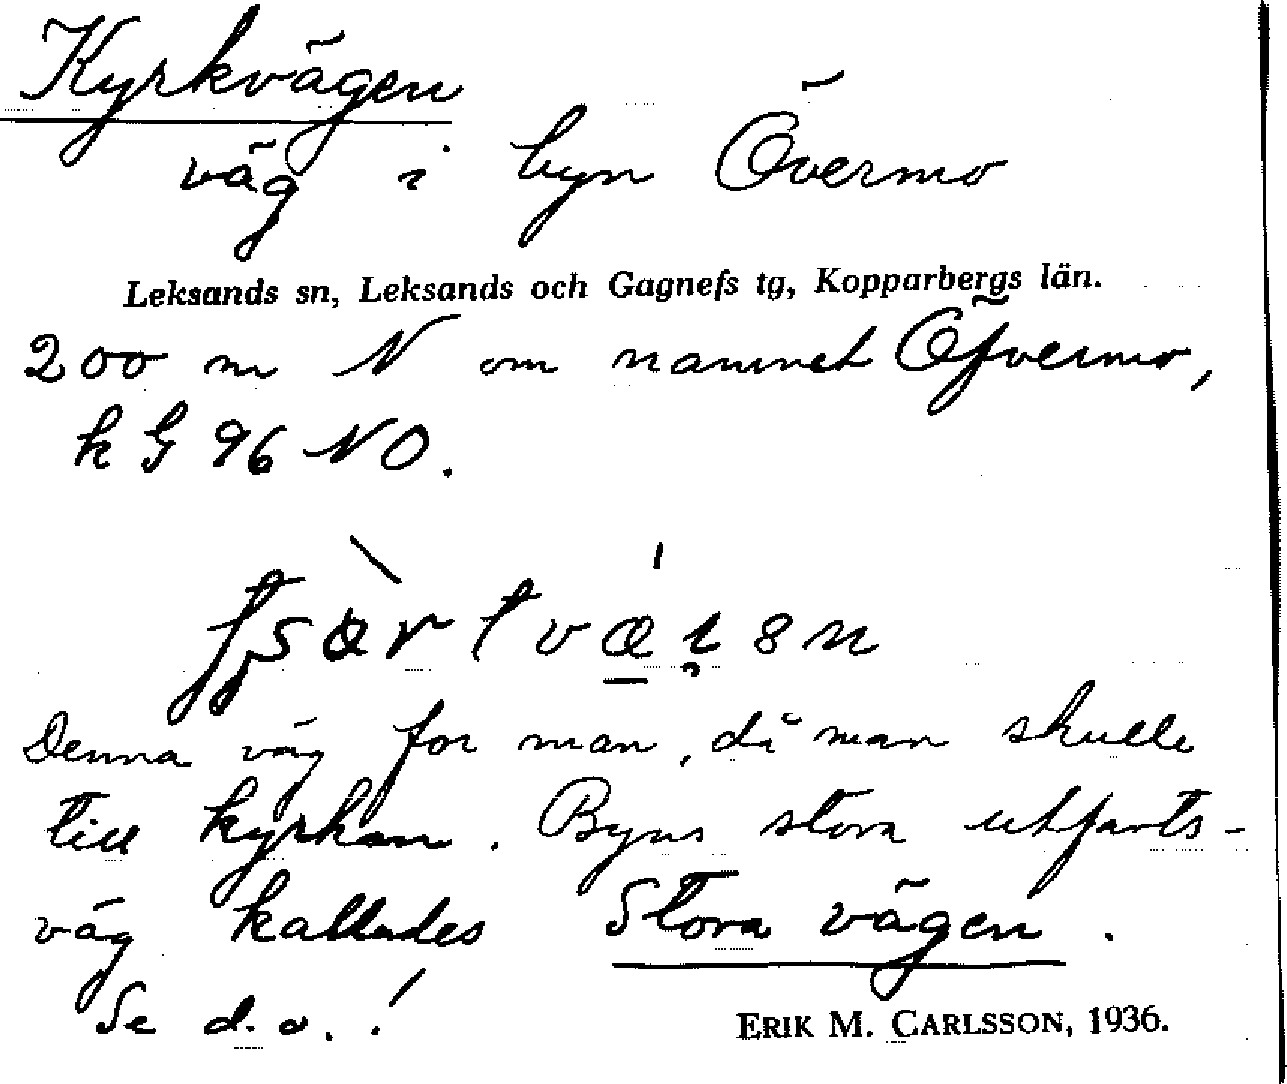 Kyrkvägen
väg i byn Övermo
Leksands sn, Leksands och Gagnefs tg, Kopparbergs län.
200 m N om namnet Öfvermo,
k G 96 NO.
Denna väg for man, då man skulle
till kyrkan. Byns stora utfarts-
väg kallades Stora vägen.
Se d. o.!
ERIK M. CARLSSON, 1936.